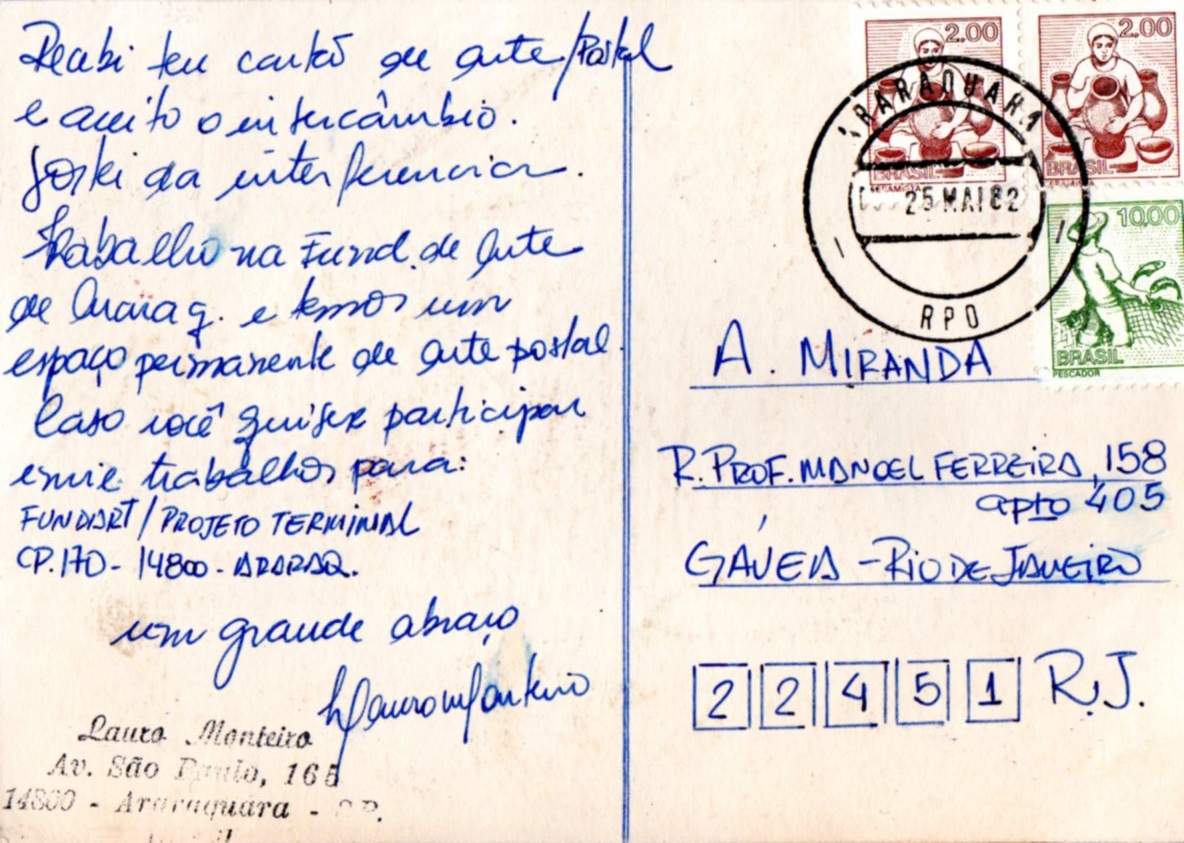 Recebi teu cartão de arte/Postal
e aceito o intercâmbio.
Gostei da interferencia.
Trabalho na Fund. de Arte
de Araraq. e temos um
espaço permanente de arte postal.
Caso você quiser participar
envie trabalhos para:
FUNDART/PROJETO TERMINAL
CP.170 - 14800 - ARARAQ.
um grande abraço
Lauro Monteiro
Lauro Monteiro
Av. São Paulo, 165
14800 - Araraquára - SP.
2.00
BRASIL
2.00
BRASIL
10,00
BRASIL
PESCADOR
ARARAQUARA
25 MAI 82
RPO
A. MIRANDA
R. PROF. MANOEL FERREIRA, 158
apto 405
GÁVEA - RIO DE JANEIRO
22451 R.J.